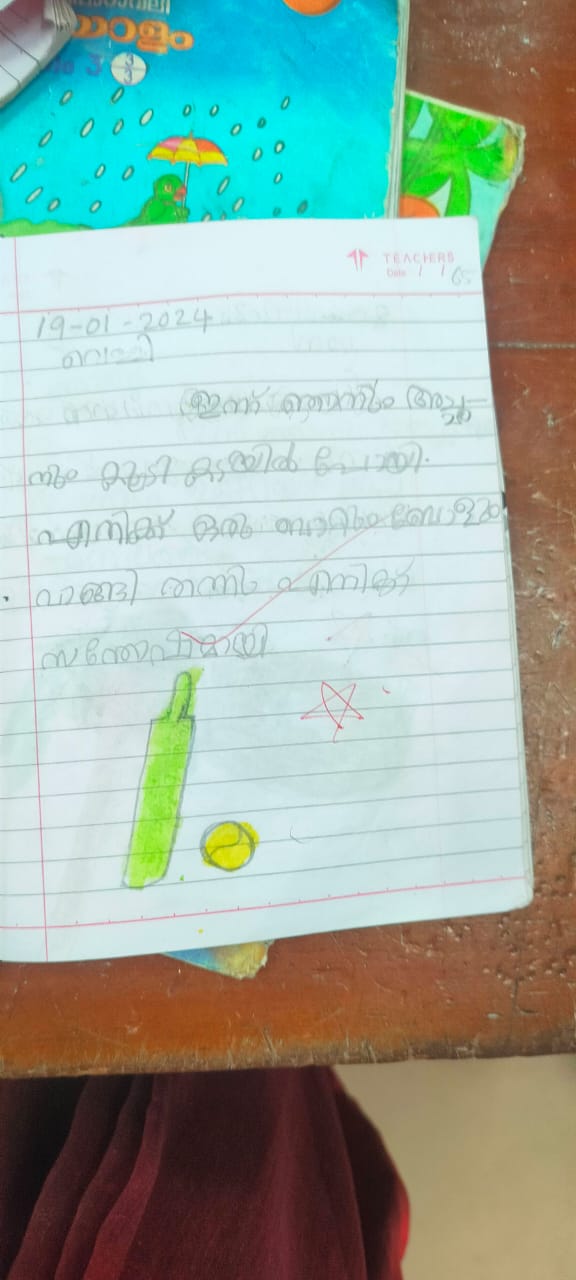 യാളം
3 3/3
TEACHERS
Date / /
19-01-2024
വെള്ളി
ഇന്ന് ഞാനും അച്ഛ
നും കൂടി കടയിൽ പോയി.
എനിക്ക് ഒരു ബാറ്റും ബോളും
വാങ്ങി തന്നു എനിക്ക്
സന്തോഷമായി